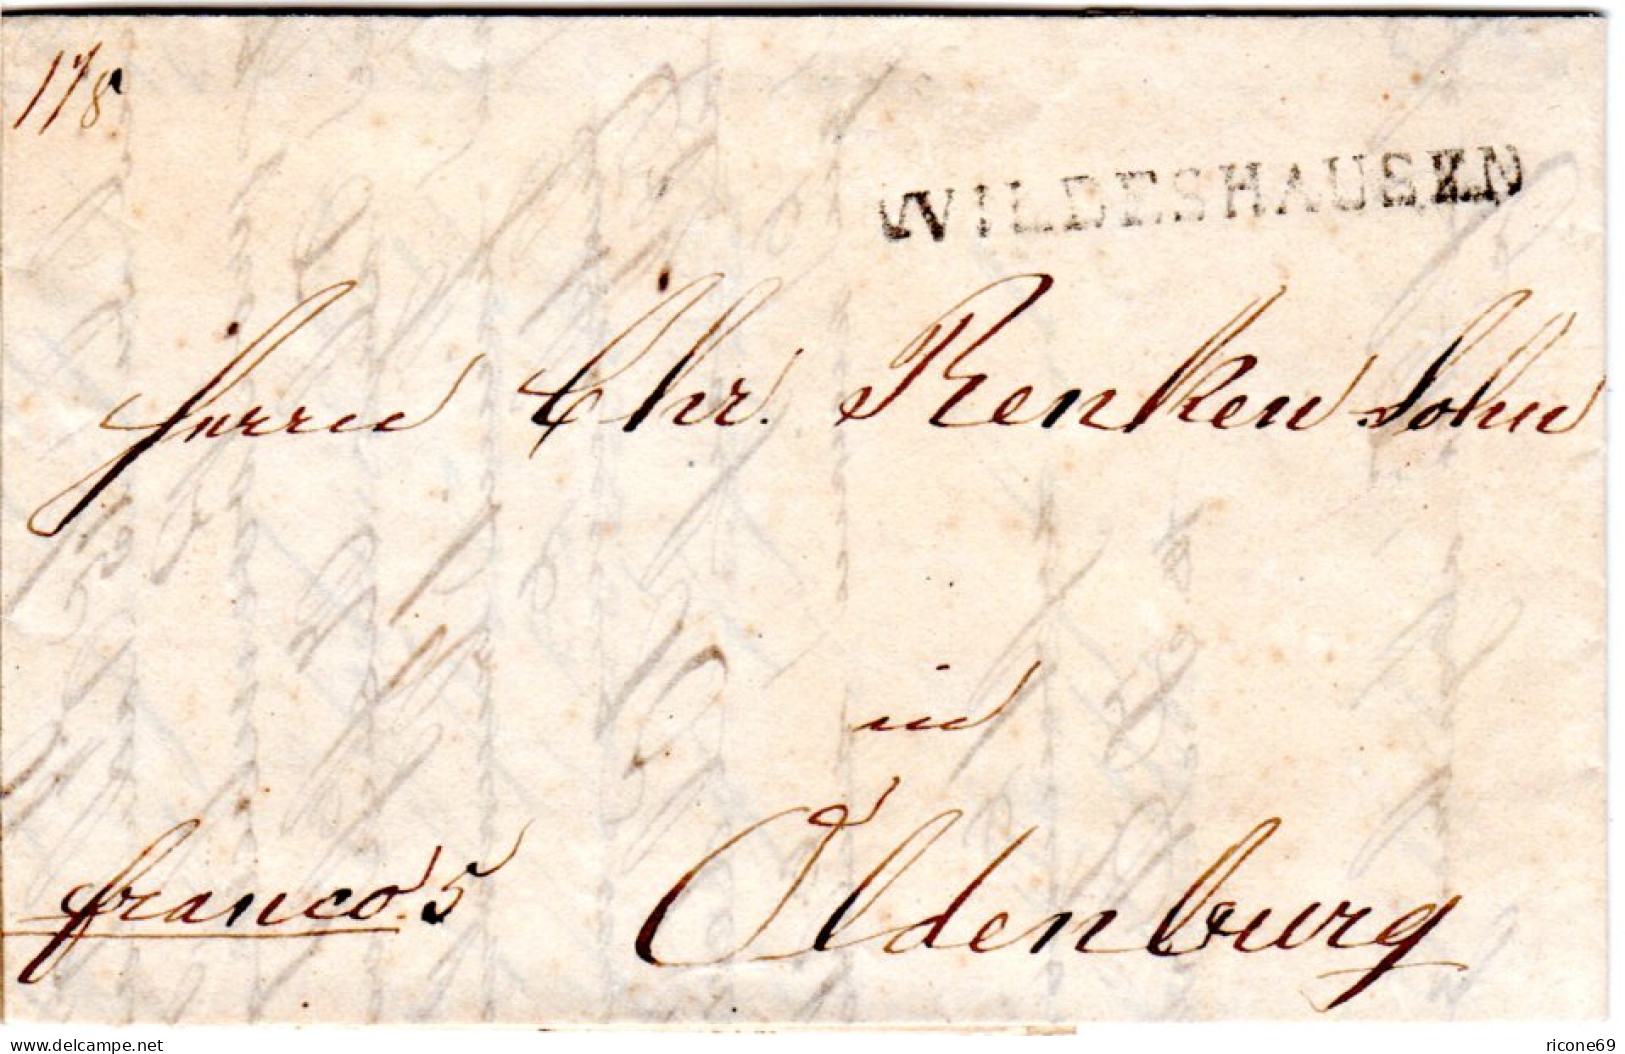 11/8
WILDESHAUSEN
Herrn Chr. Renken Sohn
in
Oldenburg
franco 5
www.delcampe.net
ricone69